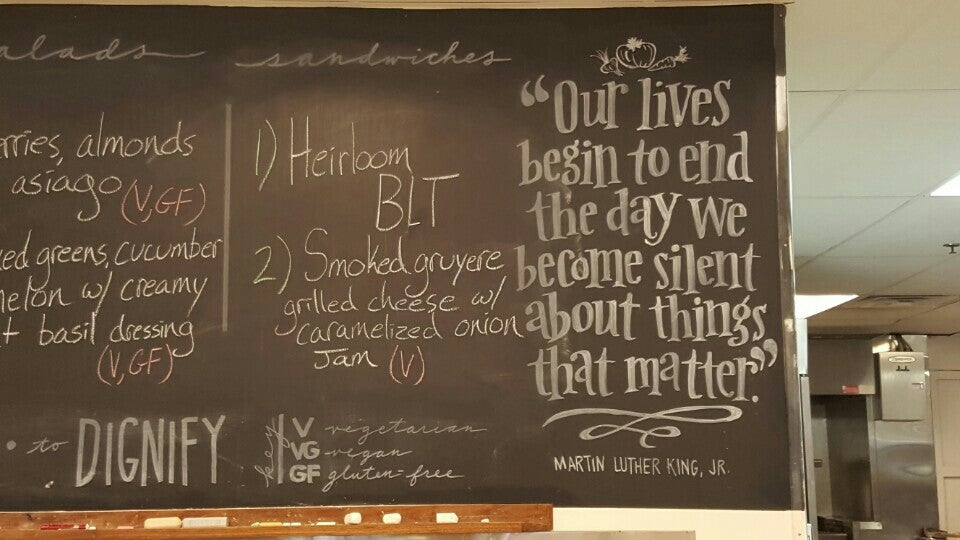 salads
erries, almonds
asiago (V,GF)
ed greens, cucumber
melon w/ creamy
t basil dressing
(V,GF)
• to DIGNIFY
sandwiches
1) Heirloom
BLT
2) Smoked gruyere
grilled cheese w/
caramelized onion
Jam (V)
key
V vegetarian
VG vegan
GF gluten-free
“Our lives
begin to end
the day we
become silent
about things
that matter.”
MARTIN LUTHER KING, JR.